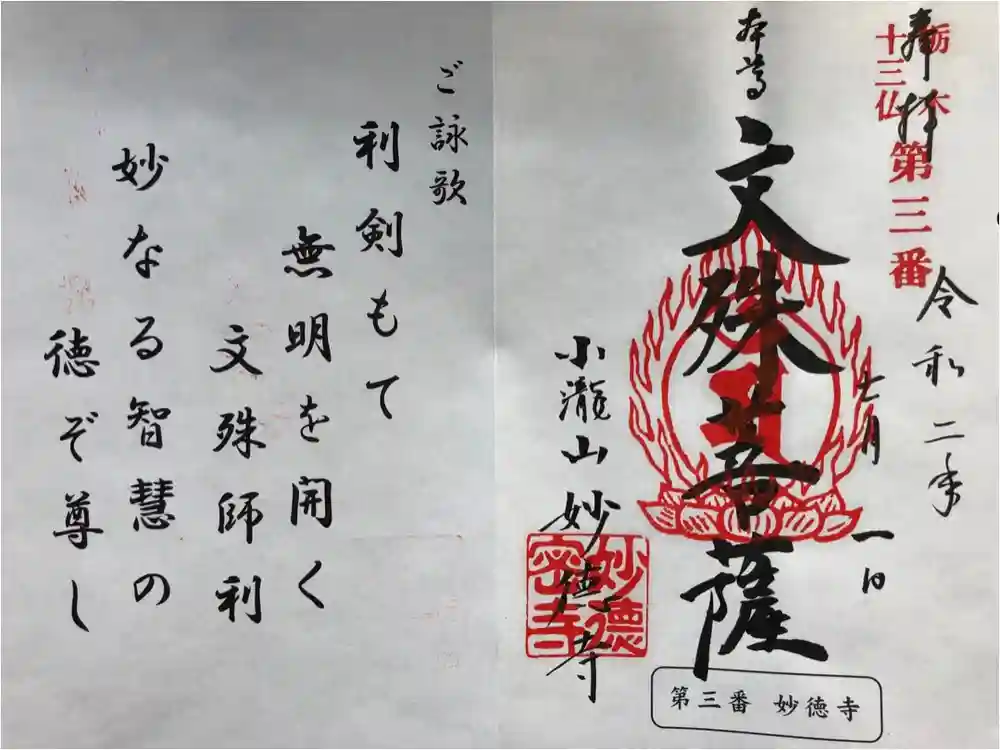 奉拝
栃木
十三仏
第三番
令和二年
七月
一日
本尊
文殊菩薩
小瀧山妙徳寺
妙徳
密寺
第三番 妙徳寺
ご詠歌
利剣もて
無明を開く
文殊師利
妙なる智慧の
徳ぞ尊し